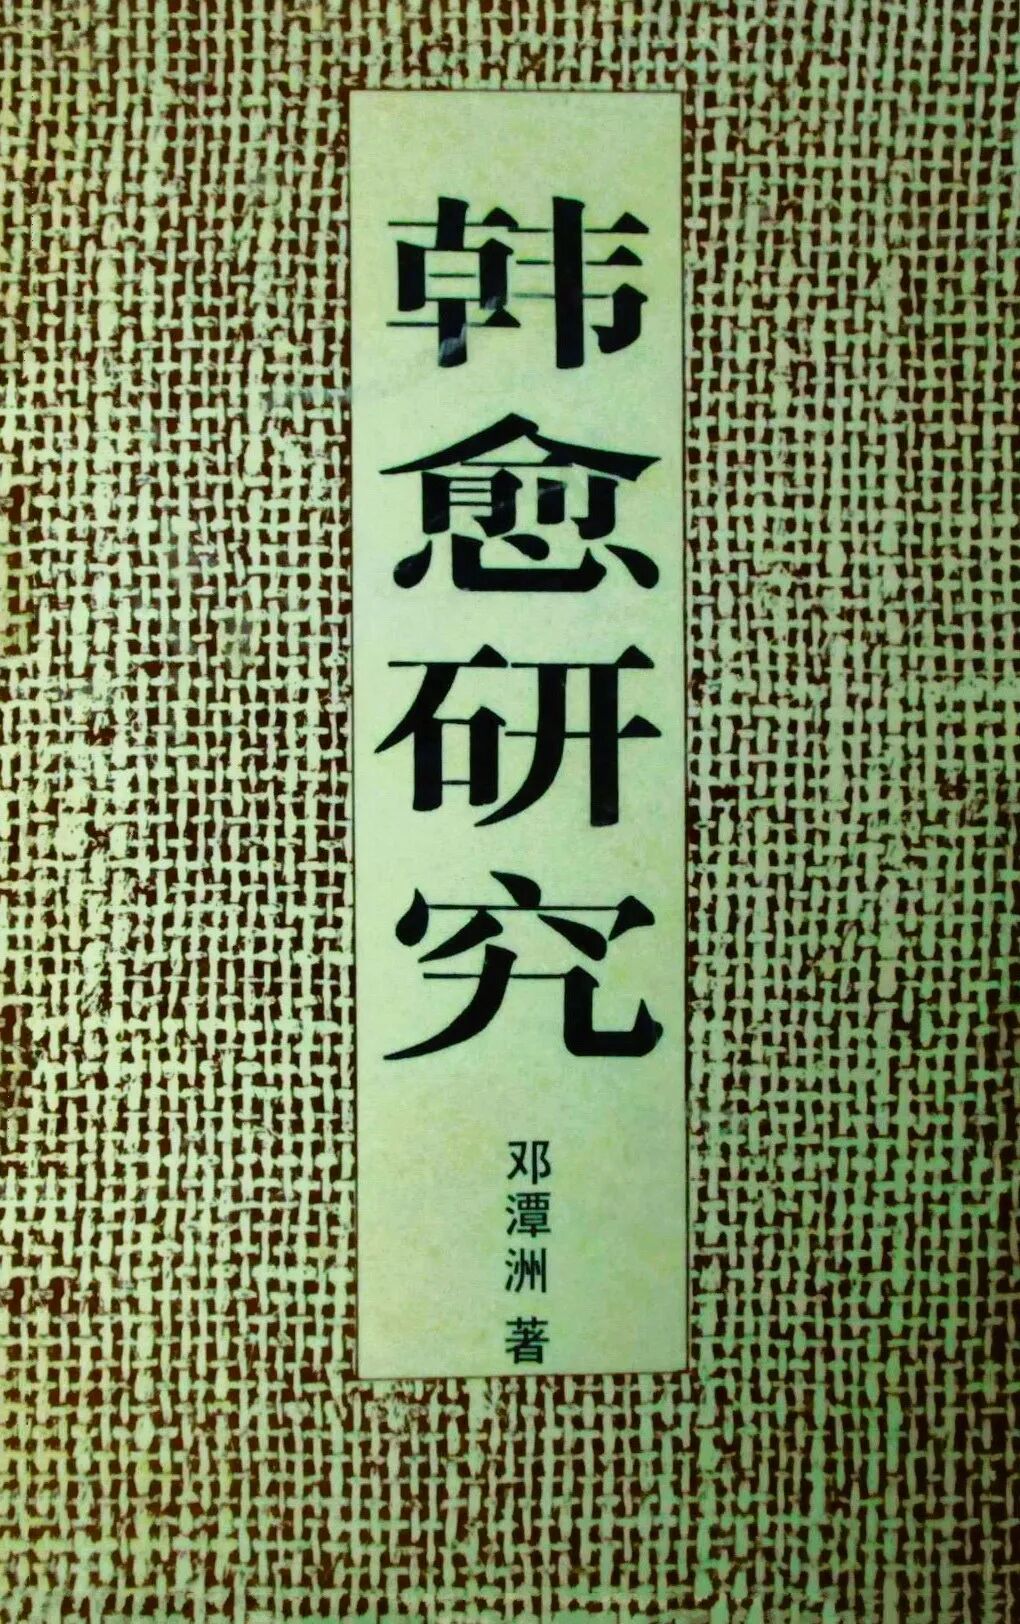 韩愈研究
邓潭洲 著